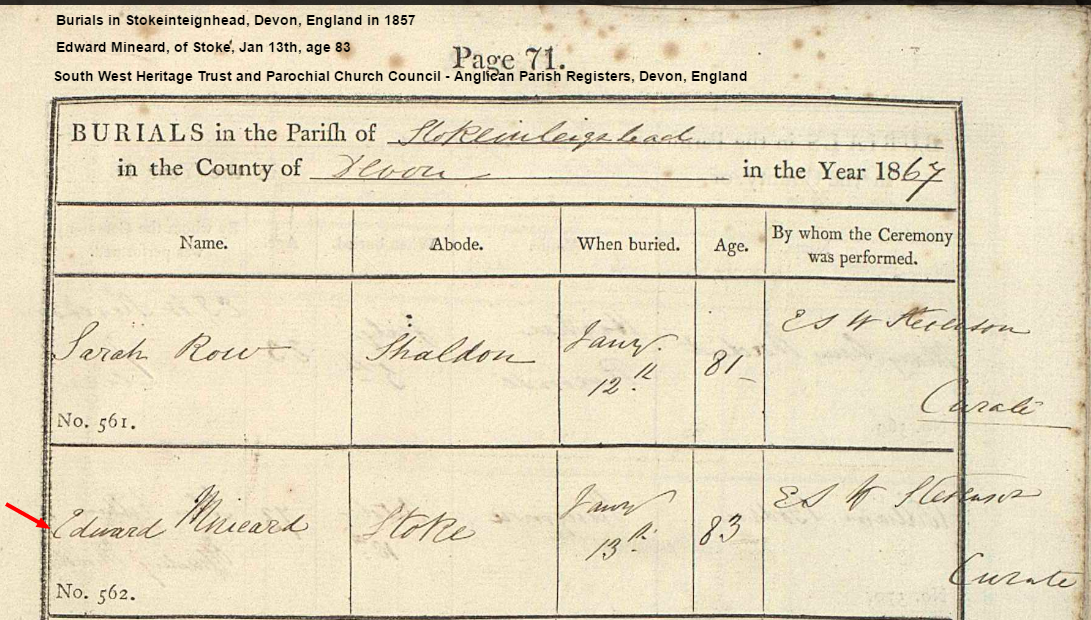 Burials in Stokeinteignhead, Devon, England in 1857
Edward Mineard, of Stoke, Jan 13th, age 83
Page 71.
South West Heritage Trust and Parochial Church Council - Anglican Parish Registers, Devon, England
BURIALS in the Pariſh of Stokeinteignhead
in the County of Devon in the Year 1867
Name. Abode. When buried. Age. By whom the Ceremony was performed.
Sarah Row Shaldon Jany. 12th 81 E S W Stevenson Curate
No. 561.
Edward Mineard Stoke Jany 13th 83 E S W Stevenson Curate
No. 562.